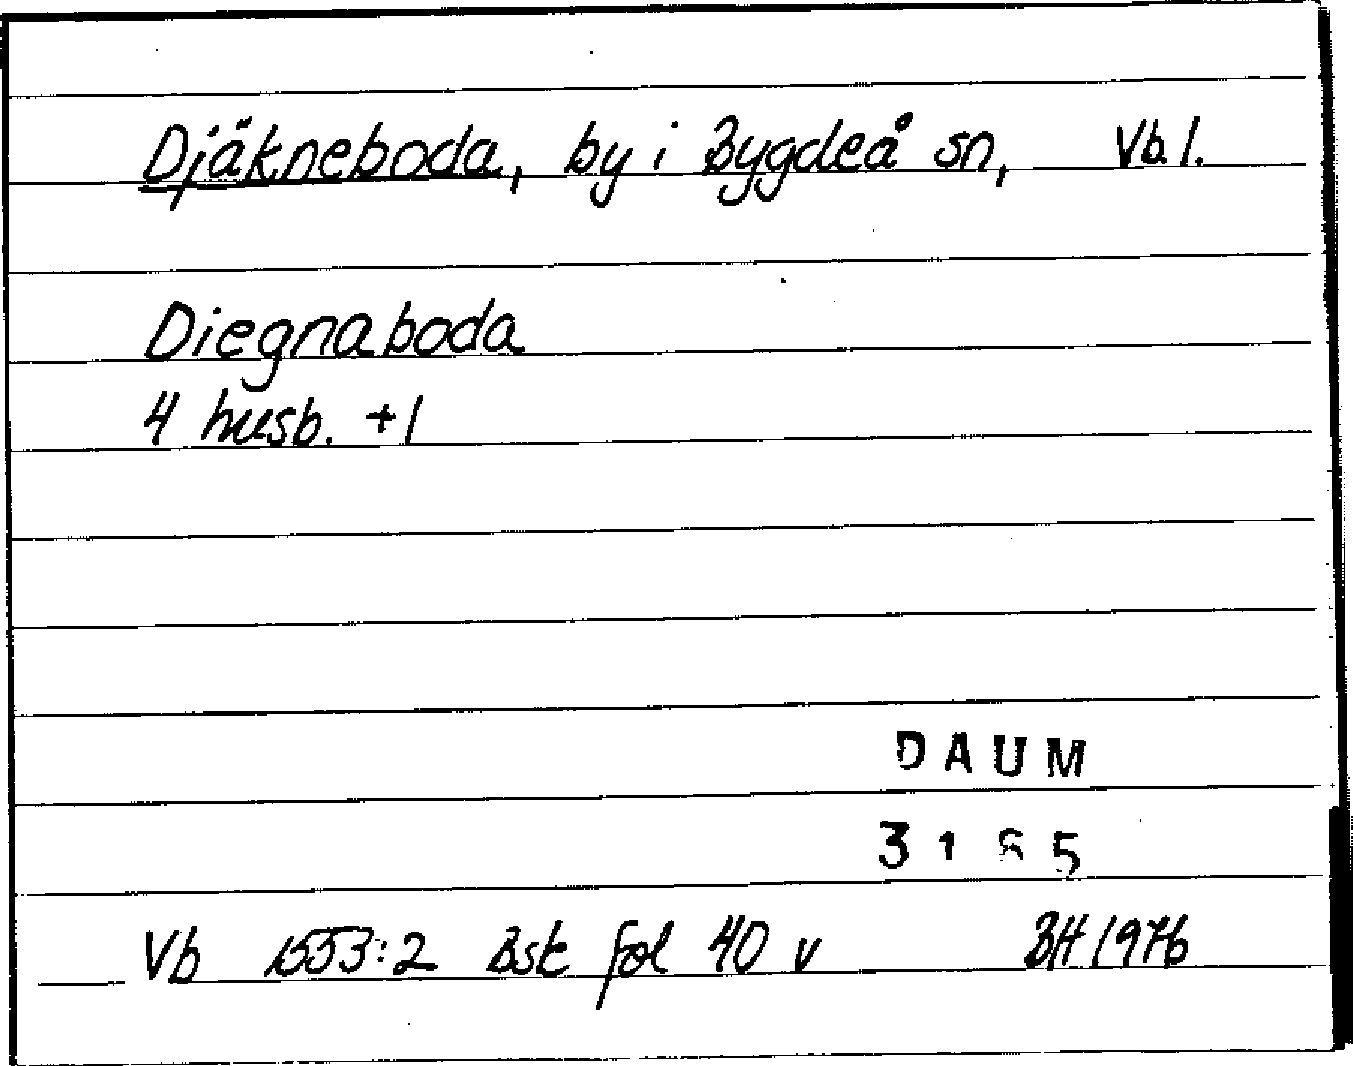 Djäkneboda, by i Bygdeå sn, Vb.l.
Diegnaboda
4 husb. +1
DAUM
3165
Vb 1553:2 Bsk fol 40 v BH 1976